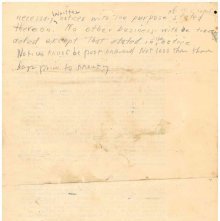 necessary written notices with the purpose stated
thereon. No other business will be trans
acted except that stated in notice
Notices must be post marked not less than three
days prior to meeting